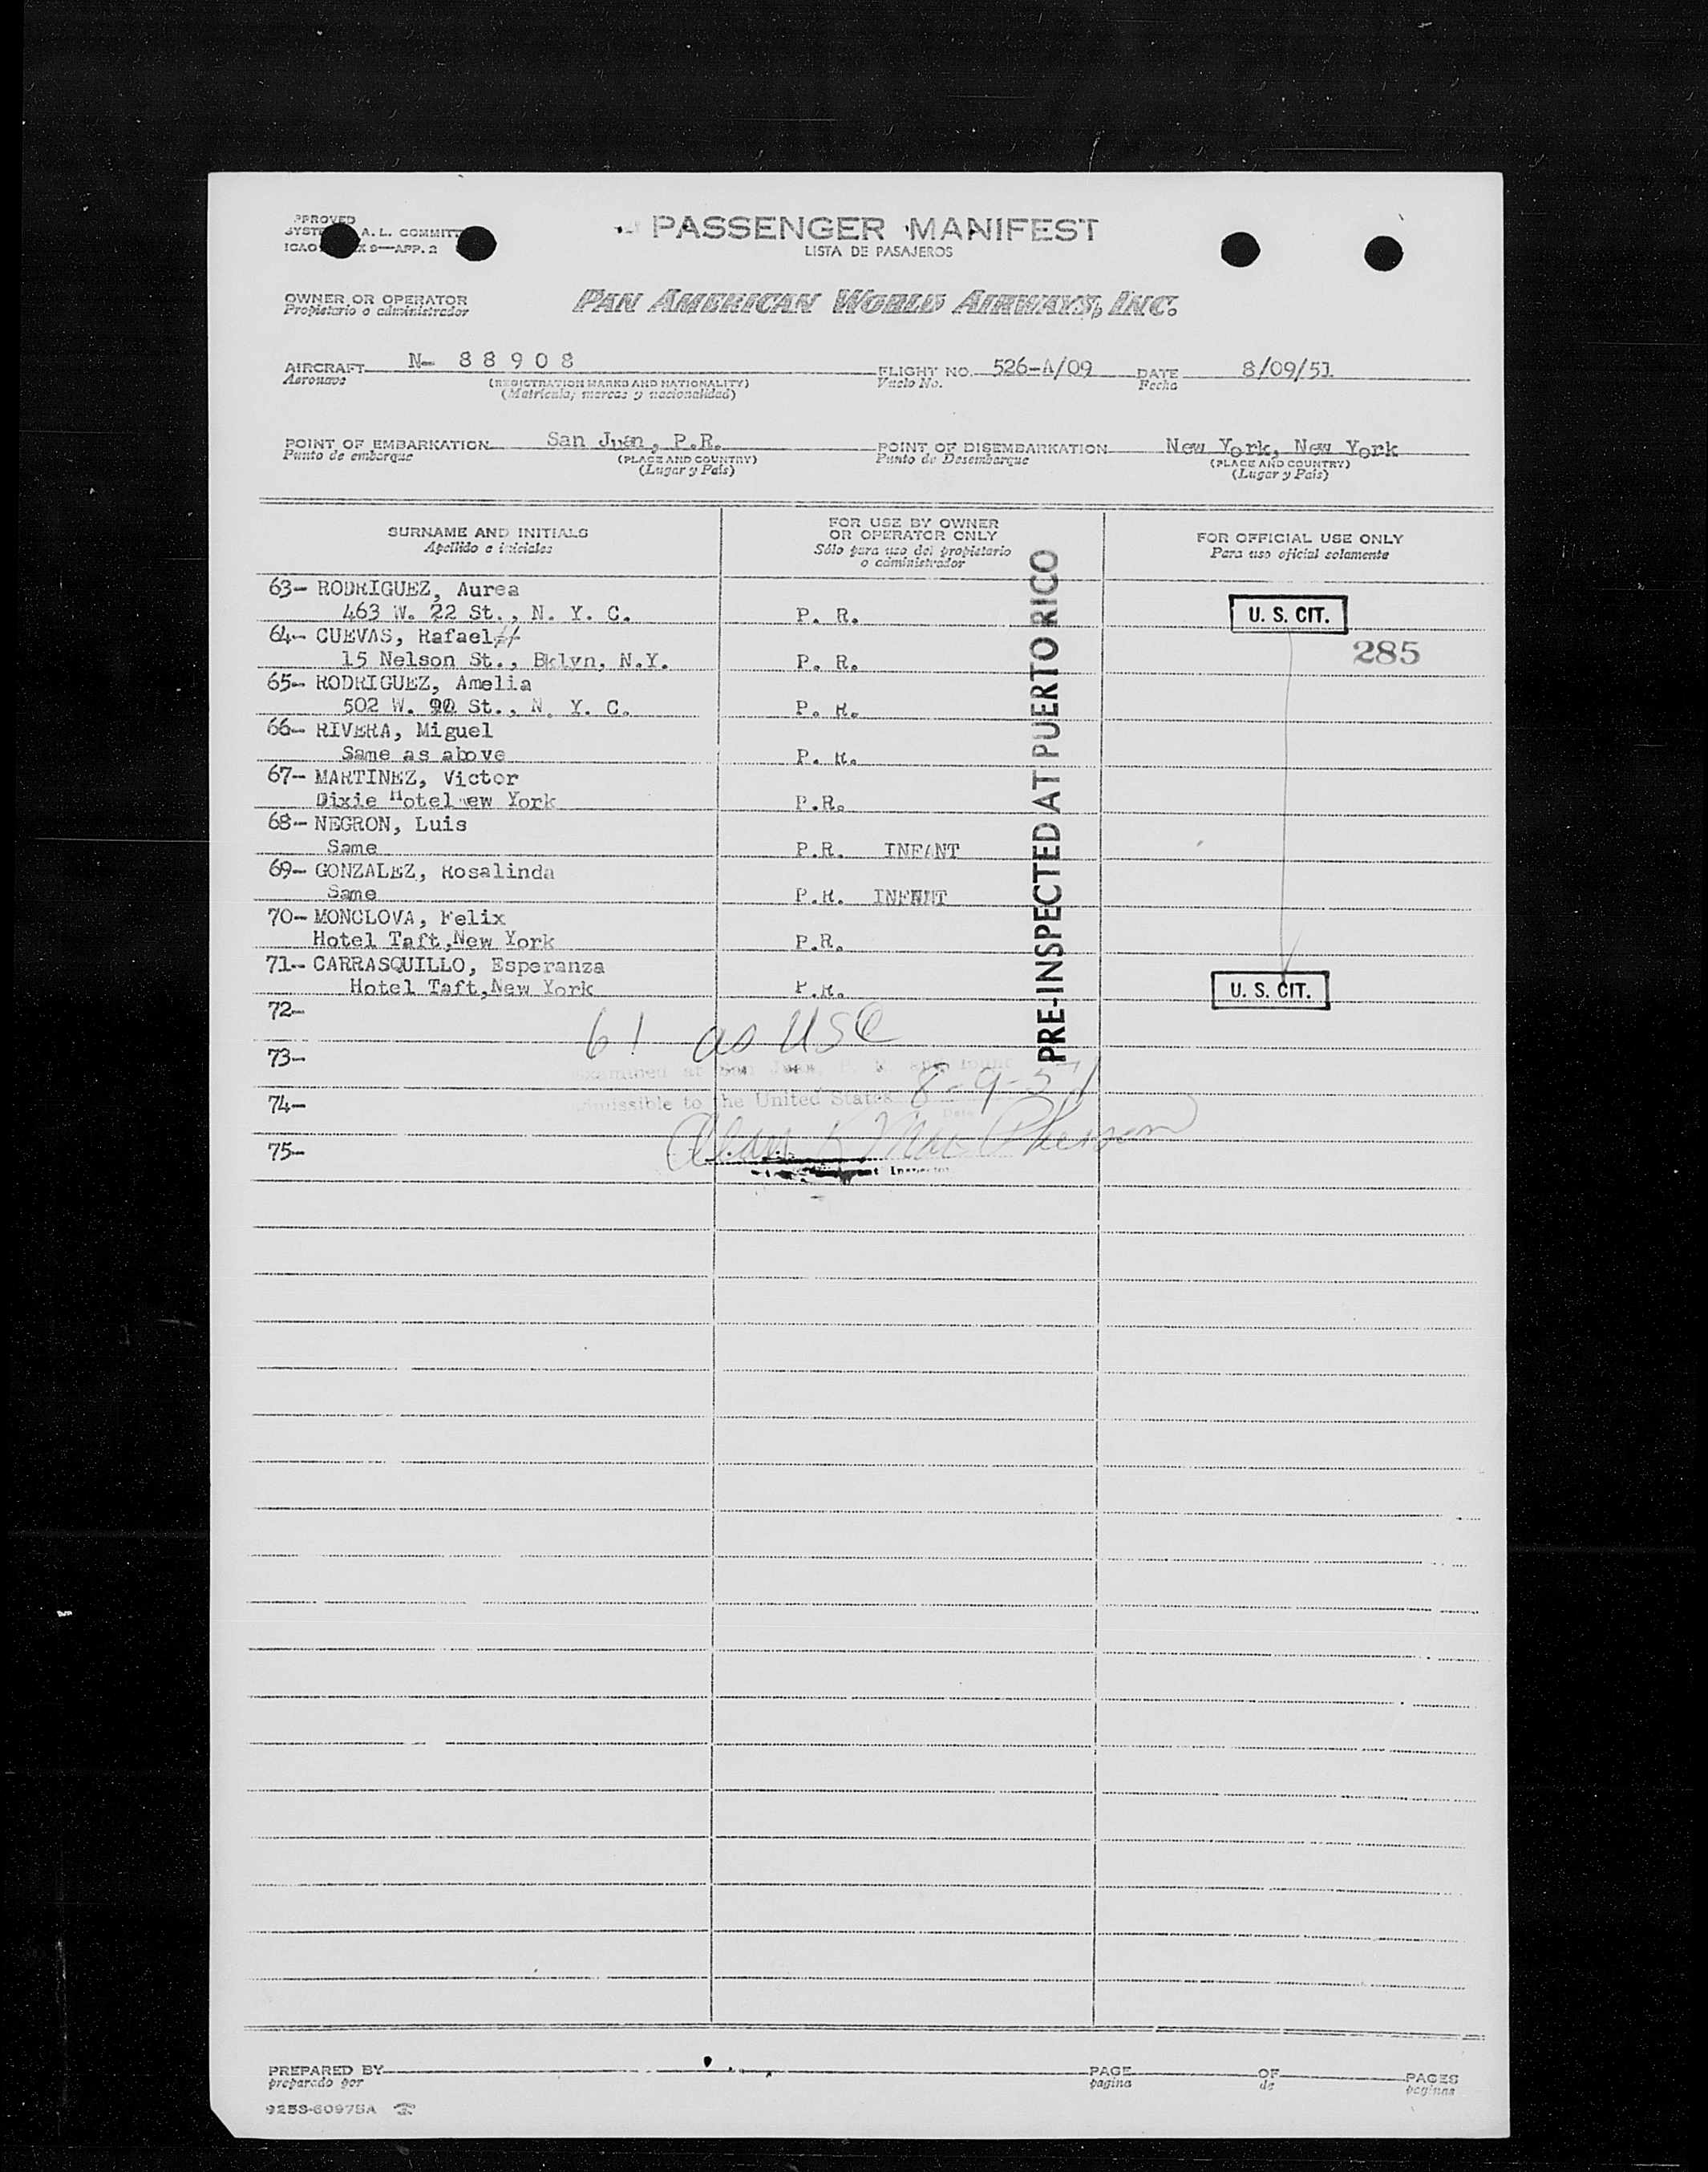 PPROVED
A. L. COMMITT
ICAO X 9—APP. 2
PASSENGER MANIFEST
LISTA DE PASAJEROS
OWNER OR OPERATOR
Propietario o administrador
PAN AMERICAN WORLD AIRWAYS, INC.
AIRCRAFT N- 8 8 9 0 8 FLIGHT NO. 526-A/09 DATE 8/09/51
Aeronave (REGISTRATION MARKS AND NATIONALITY) Vuelo No. Fecha
(Matricula, marcas y nacionalidad)
POINT OF EMBARKATION San Juan, P.R. POINT OF DISEMBARKATION New York, New York
Punto de embarque (PLACE AND COUNTRY) Punto de Desembarque (PLACE AND COUNTRY)
(Lugar y País) (Lugar y País)
SURNAME AND INITIALS FOR USE BY OWNER OR OPERATOR ONLY FOR OFFICIAL USE ONLY
Apellido e iniciales Sólo para uso del propietario o administrador Para uso oficial solamente
63- RODRIGUEZ, Aurea
463 W. 22 St., N. Y. C. P. R. U. S. CIT.
64- CUEVAS, Rafael
15 Nelson St., Bklyn, N.Y. P. R. 285
65- RODRIGUEZ, Amelia
502 W. St., N. Y. C. P. R.
66- RIVERA, Miguel
Same as above P. R.
67- MARTINEZ, Victor
Dixie Hotel ew York P.R.
68- NEGRON, Luis
Same P.R. INFANT
69- GONZALEZ, Rosalinda
Same P.R. INFANT
70- MONCLOVA, Felix
Hotel Taft,New York P.R.
71- CARRASQUILLO, Esperanza
Hotel Taft,New York P.R. U. S. CIT.
PRE-INSPECTED AT PUERTO RICO
72-
61 as USC
73-
examined at San Juan, P. R. and found
admissible to the United States 8-9-51
Date
74-
75-
PREPARED BY PAGE OF PAGES
preparado por pagina de paginas
9253-60975A